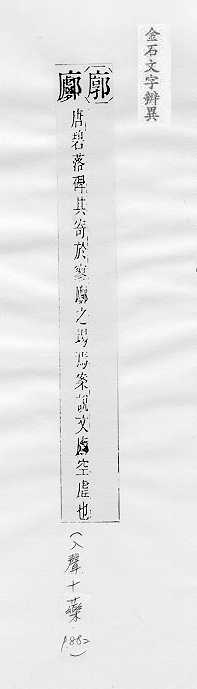 金石文字辨異
(廓)廫
唐碧落碑其寄於寥廫之場焉案說文廫空虛也
(入聲十藥 P.882)